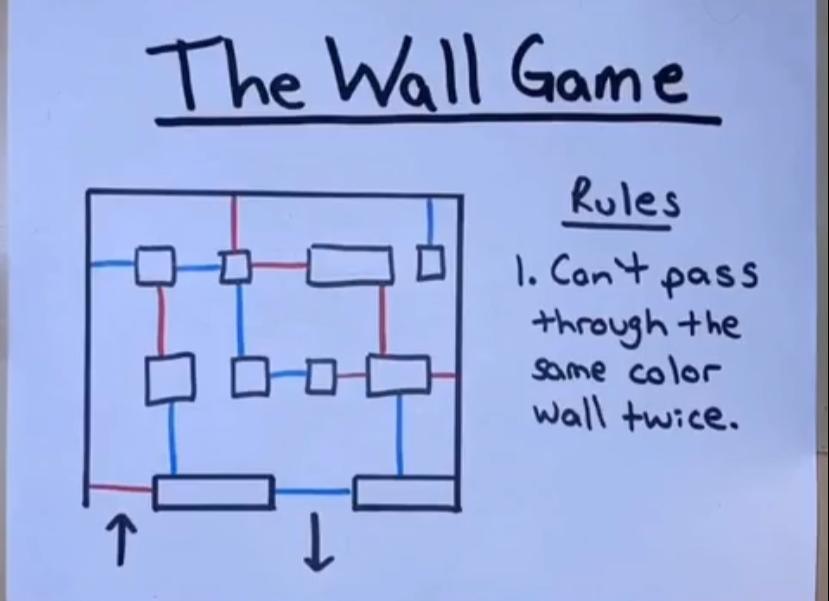 The Wall Game
Rules
1. Can't pass
through the
same color
wall twice.